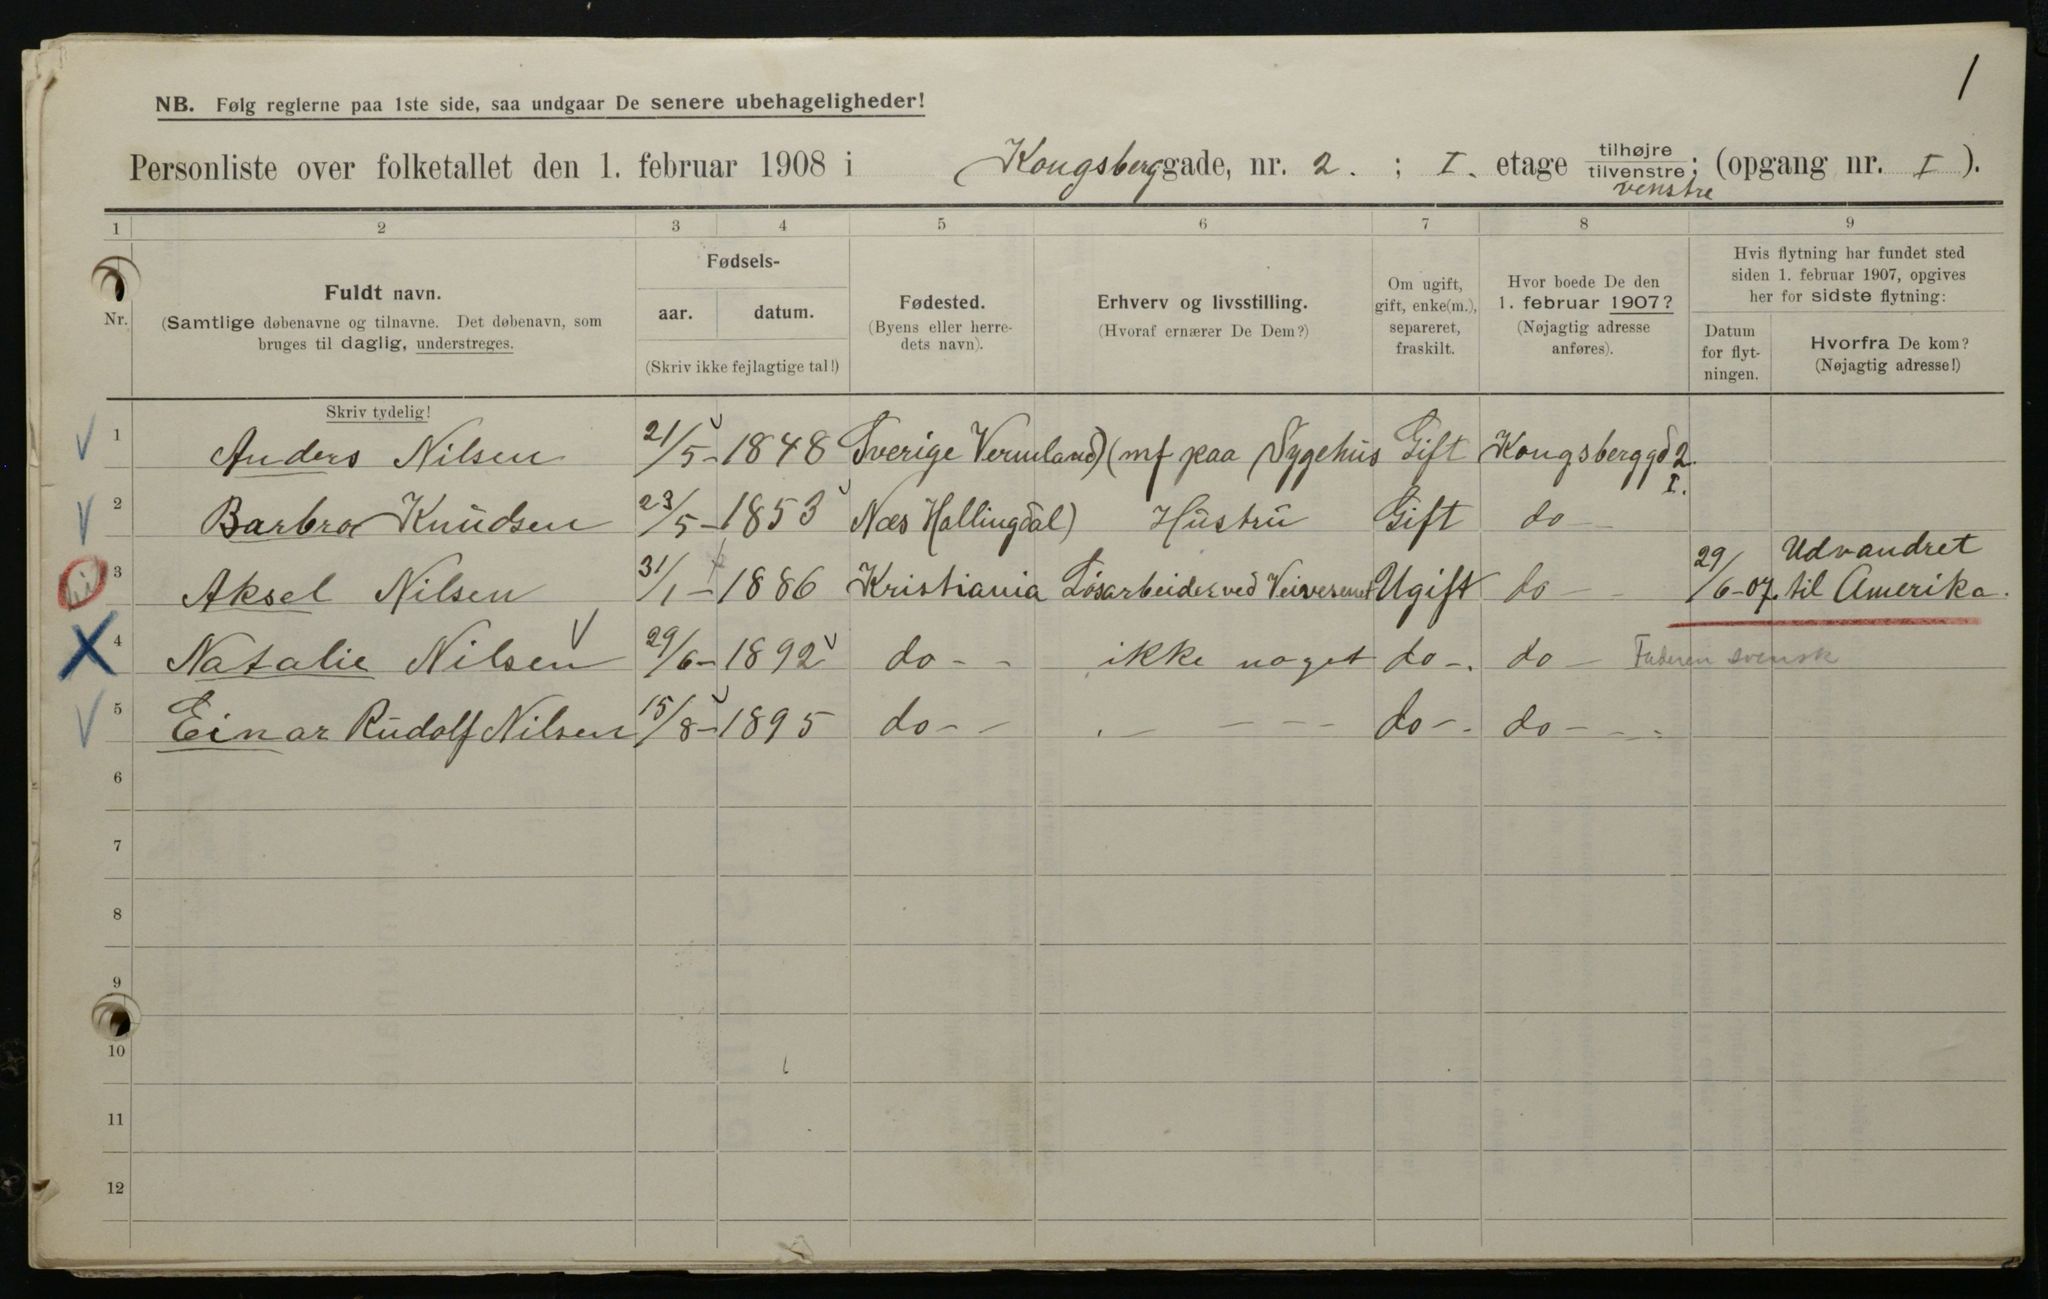 1
NB. Følg reglerne paa 1ste side, saa undgaar De senere ubehageligheder!
Personliste over folketallet den 1. februar 1908 i Kongsberggade, nr. 2. ; I. etage tilhøjre tilvenstre ; (opgang nr. I ).
venstre
1 2 3 4 5 6 7 8 9
Nr.
Fuldt navn.
(Samtlige døbenavne og tilnavne. Det døbenavn, som
bruges til daglig, understreges.
Skriv tydelig!
Fødsels-
aar. datum.
(Skriv ikke fejlagtige tal!)
Fødested.
(Byens eller herre-
dets navn).
Erhverv og livsstilling.
(Hvoraf ernærer De Dem?)
Om ugift,
gift, enke(m.),
separeret,
fraskilt.
Hvor boede De den
1. februar 1907?
(Nøjagtig adresse
anføres).
Hvis flytning har fundet sted
siden 1. februar 1907, opgives
her for sidste flytning:
Datum
for flyt-
ningen.
Hvorfra De kom?
(Nøjagtig adresse!)
1 Anders Nilsen 21/5 - 1848 Sverige Vermland) (mf paa Sygehus Gift Kongsberggd 2 I.
2 Barbro Knudsen 23/5 - 1853 Næs Hallingdal) Hustru Gift do -
3 Aksel Nilsen 31/1 - 1886 Kristiania Løsarbeider ved Veivesenet Ugift do - - 29/6-07. Udvandret til Amerika.
4 Natalie Nilsen 29/6 - 1892 do - - ikke noget do -. do - Faderen svensk
5 Einar Rudolf Nilsen 15/8 - 1895 do - - - - - - do -. do - - -
6
7
8
9
10
11
12